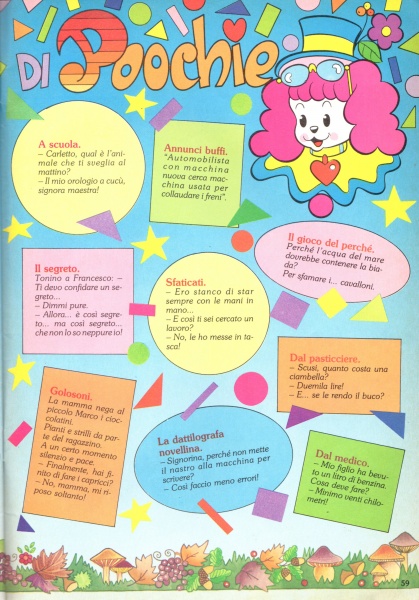 DI Poochie
A scuola.
– Carletto, qual è l'ani-
male che ti sveglia al
mattino?
– Il mio orologio a cucù,
signora maestra!
Annunci buffi.
"Automobilista
con macchina
nuova cerca mac-
china usata per
collaudare i freni".
Il gioco del perché.
Perché l'acqua del mare
dovrebbe contenere la bia-
da?
Per sfamare i... cavalloni.
Il segreto.
Tonino a Francesco: –
Ti devo confidare un se-
greto...
– Dimmi pure.
– Allora... è così segre-
to... ma così segreto...
che non lo so neppure io!
Sfaticati.
– Ero stanco di star
sempre con le mani in
mano...
– E così ti sei cercato un
lavoro?
– No, le ho messe in ta-
sca!
Dal pasticcere.
– Scusi, quanto costa una
ciambella?
– Duemila lire!
– E... se le rendo il buco?
Golosoni.
La mamma nega al
piccolo Marco i cioc-
colatini.
Pianti e strilli da par-
te del ragazzino.
A un certo momento
silenzio e pace.
– Finalmente, hai fi-
nito di fare i capricci?
– No, mamma, mi ri-
poso soltanto!
La dattilografa
novellina.
– Signorina, perché non mette
il nastro alla macchina per
scrivere?
– Così faccio meno errori!
Dal medico.
– Mio figlio ha bevu-
to un litro di benzina.
Cosa deve fare?
– Minimo venti chilo-
metri!
59